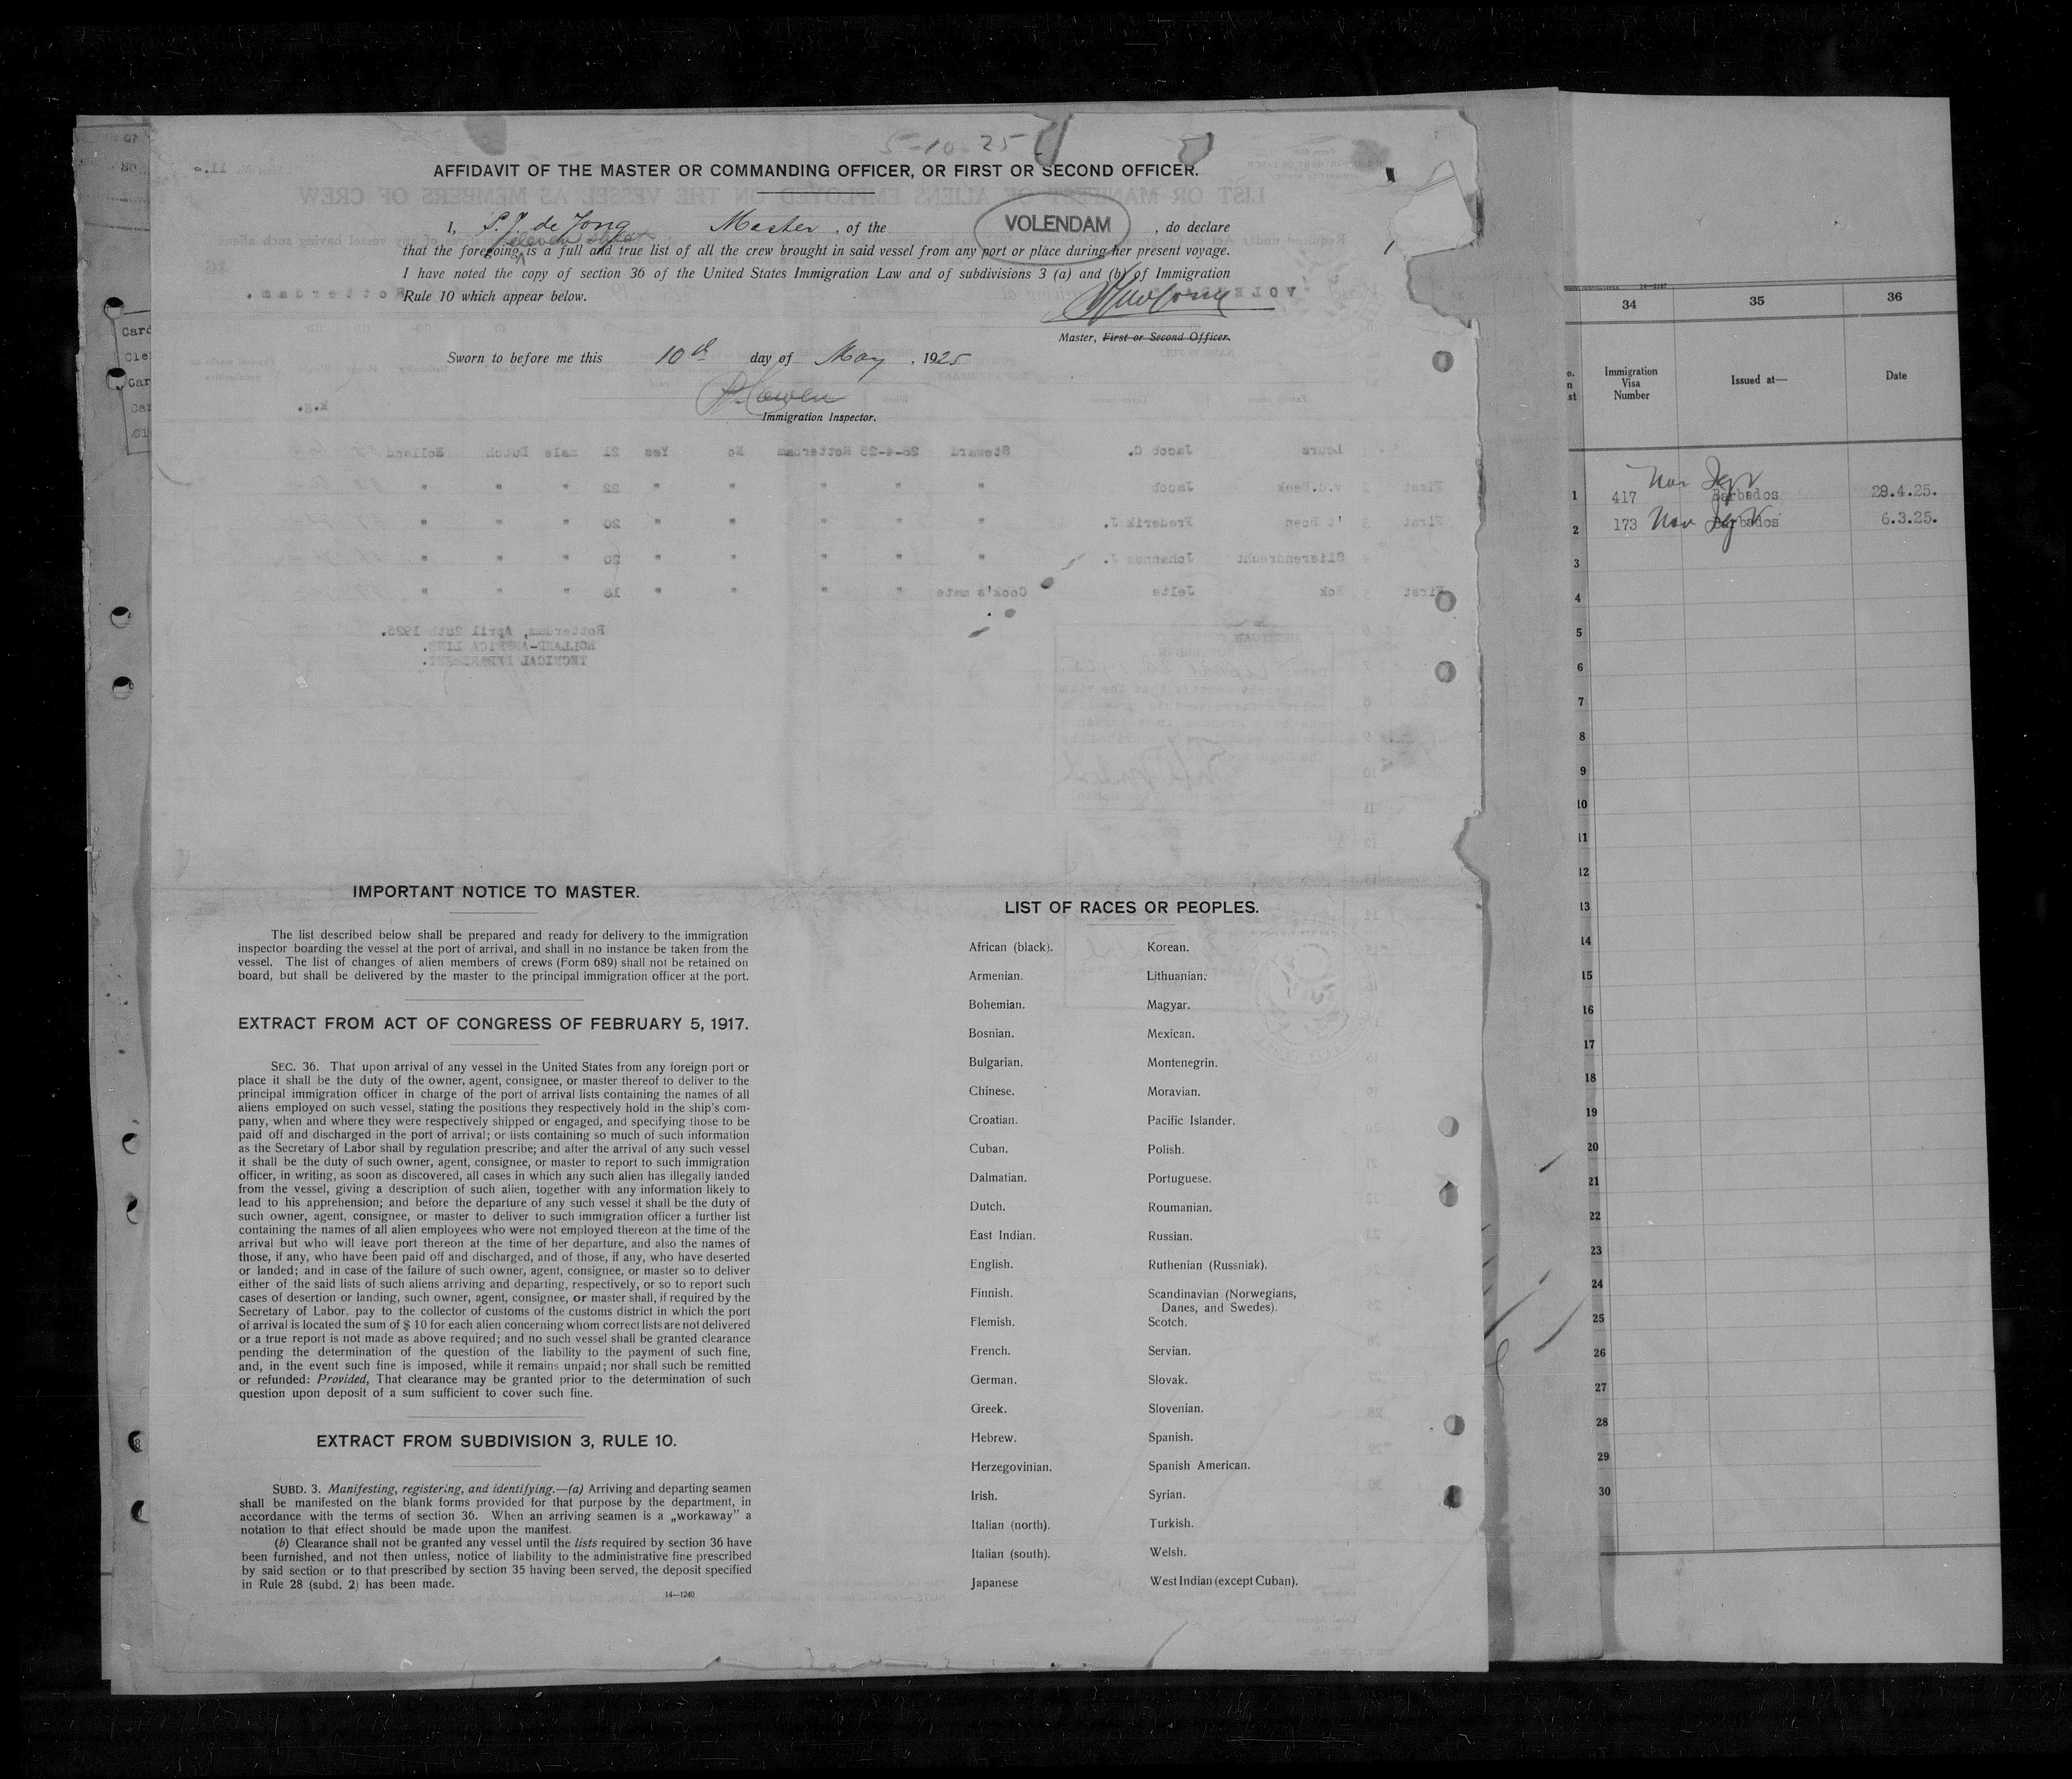 5-10-25
AFFIDAVIT OF THE MASTER OR COMMANDING OFFICER, OR FIRST OR SECOND OFFICER.
I, P.J. de Jong Master, of the VOLENDAM, do declare
eleven sheets
that the foregoing is a full and true list of all the crew brought in said vessel from any port or place during her present voyage.
I have noted the copy of section 36 of the United States Immigration Law and of subdivisions 3 (a) and (b) of Immigration
Rule 10 which appear below.
Master, First or Second Officer.
Sworn to before me this 10th day of May, 1925
Immigration Inspector.
IMPORTANT NOTICE TO MASTER.
The list described below shall be prepared and ready for delivery to the immigration
inspector boarding the vessel at the port of arrival, and shall in no instance be taken from the
vessel. The list of changes of alien members of crews (Form 689) shall not be retained on
board, but shall be delivered by the master to the principal immigration officer at the port.
EXTRACT FROM ACT OF CONGRESS OF FEBRUARY 5, 1917.
SEC. 36. That upon arrival of any vessel in the United States from any foreign port or
place it shall be the duty of the owner, agent, consignee, or master thereof to deliver to the
principal immigration officer in charge of the port of arrival lists containing the names of all
aliens employed on such vessel, stating the positions they respectively hold in the ship's com-
pany, when and where they were respectively shipped or engaged, and specifying those to be
paid off and discharged in the port of arrival; or lists containing so much of such information
as the Secretary of Labor shall by regulation prescribe; and after the arrival of any such vessel
it shall be the duty of such owner, agent, consignee, or master to report to such immigration
officer, in writing, as soon as discovered, all cases in which any such alien has illegally landed
from the vessel, giving a description of such alien, together with any information likely to
lead to his apprehension; and before the departure of any such vessel it shall be the duty of
such owner, agent, consignee, or master to deliver to such immigration officer a further list
containing the names of all alien employees who were not employed thereon at the time of the
arrival but who will leave port thereon at the time of her departure, and also the names of
those, if any, who have been paid off and discharged, and of those, if any, who have deserted
or landed; and in case of the failure of such owner, agent, consignee, or master so to deliver
either of the said lists of such aliens arriving and departing, respectively, or so to report such
cases of desertion or landing, such owner, agent, consignee, or master shall, if required by the
Secretary of Labor, pay to the collector of customs of the customs district in which the port
of arrival is located the sum of $ 10 for each alien concerning whom correct lists are not delivered
or a true report is not made as above required; and no such vessel shall be granted clearance
pending the determination of the question of the liability to the payment of such fine,
and, in the event such fine is imposed, while it remains unpaid; nor shall such be remitted
or refunded: Provided, That clearance may be granted prior to the determination of such
question upon deposit of a sum sufficient to cover such fine.
EXTRACT FROM SUBDIVISION 3, RULE 10.
SUBD. 3. Manifesting, registering, and identifying.—(a) Arriving and departing seamen
shall be manifested on the blank forms provided for that purpose by the department, in
accordance with the terms of section 36. When an arriving seamen is a „workaway" a
notation to that effect should be made upon the manifest.
(b) Clearance shall not be granted any vessel until the lists required by section 36 have
been furnished, and not then unless, notice of liability to the administrative fine prescribed
by said section or to that prescribed by section 35 having been served, the deposit specified
in Rule 28 (subd. 2) has been made.
14—1240
LIST OF RACES OR PEOPLES.
African (black). Korean.
Armenian. Lithuanian.
Bohemian. Magyar.
Bosnian. Mexican.
Bulgarian. Montenegrin.
Chinese. Moravian.
Croatian. Pacific Islander.
Cuban. Polish.
Dalmatian. Portuguese.
Dutch. Roumanian.
East Indian. Russian.
English. Ruthenian (Russniak).
Finnish. Scandinavian (Norwegians,
Danes, and Swedes).
Flemish. Scotch.
French. Servian.
German. Slovak.
Greek. Slovenian.
Hebrew. Spanish.
Herzegovinian. Spanish American.
Irish. Syrian.
Italian (north). Turkish.
Italian (south). Welsh.
Japanese West Indian (except Cuban).
34 35 36
Immigration
Visa
Number
Issued at—
Date
1 417 Barbados 29.4.25.
2 173 Barbados 6.3.25.
3
4
5
6
7
8
9
10
11
12
13
14
15
16
17
18
19
20
21
22
23
24
25
26
27
28
29
30